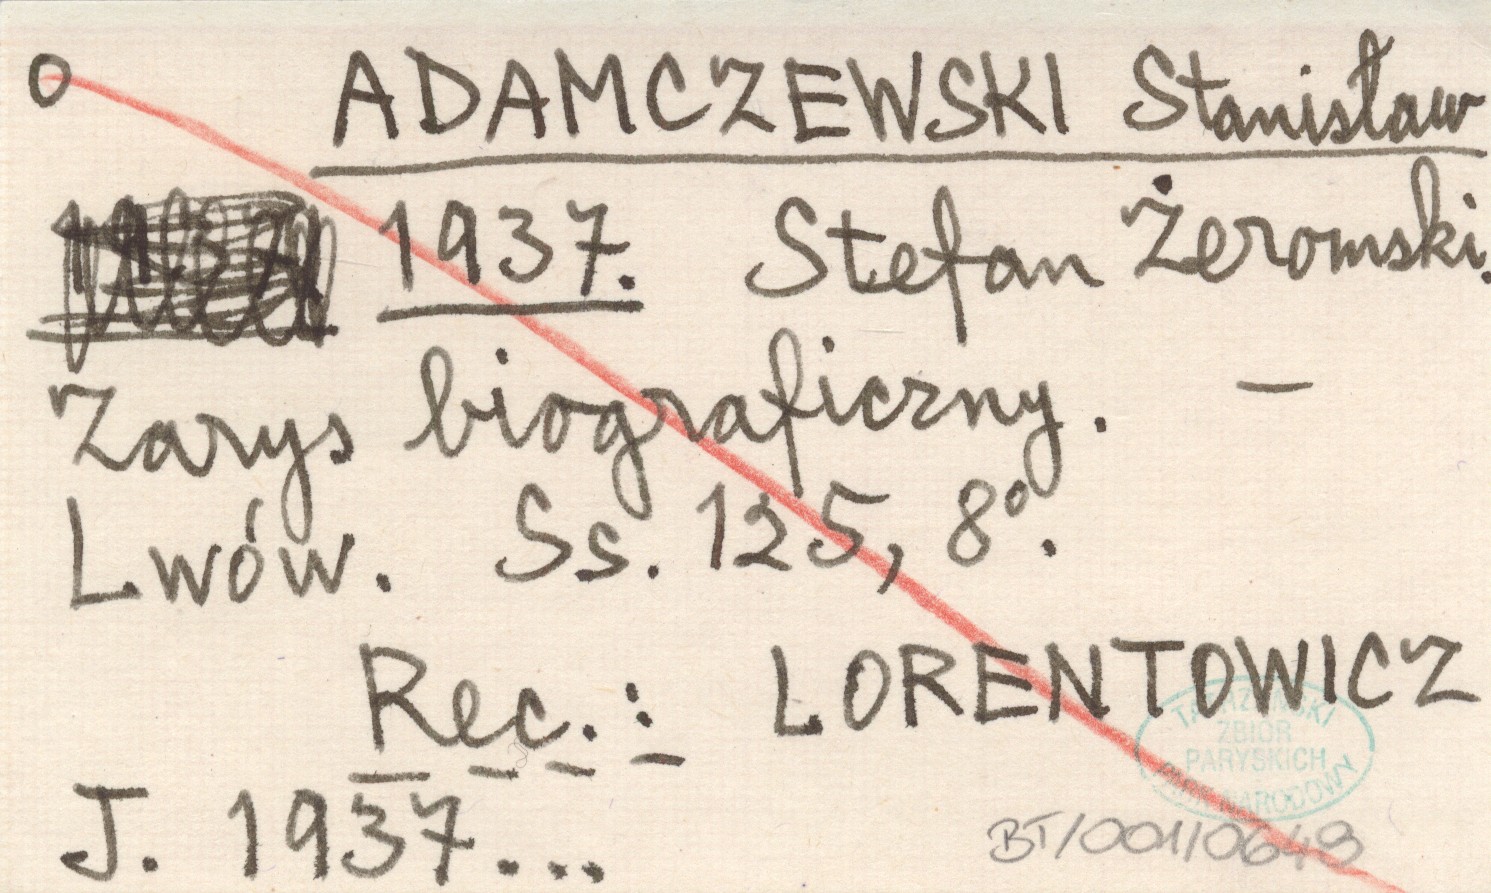 O ADAMCZEWSKI Stanisław
1937. Stefan Żeromski.
Zarys biograficzny. —
Lwów. Ss. 125, 8°.
Rec.: LORENTOWICZ
J. 1937...
ZBIÓR
PARYSKICH
NARODOWY
BT/001/0649